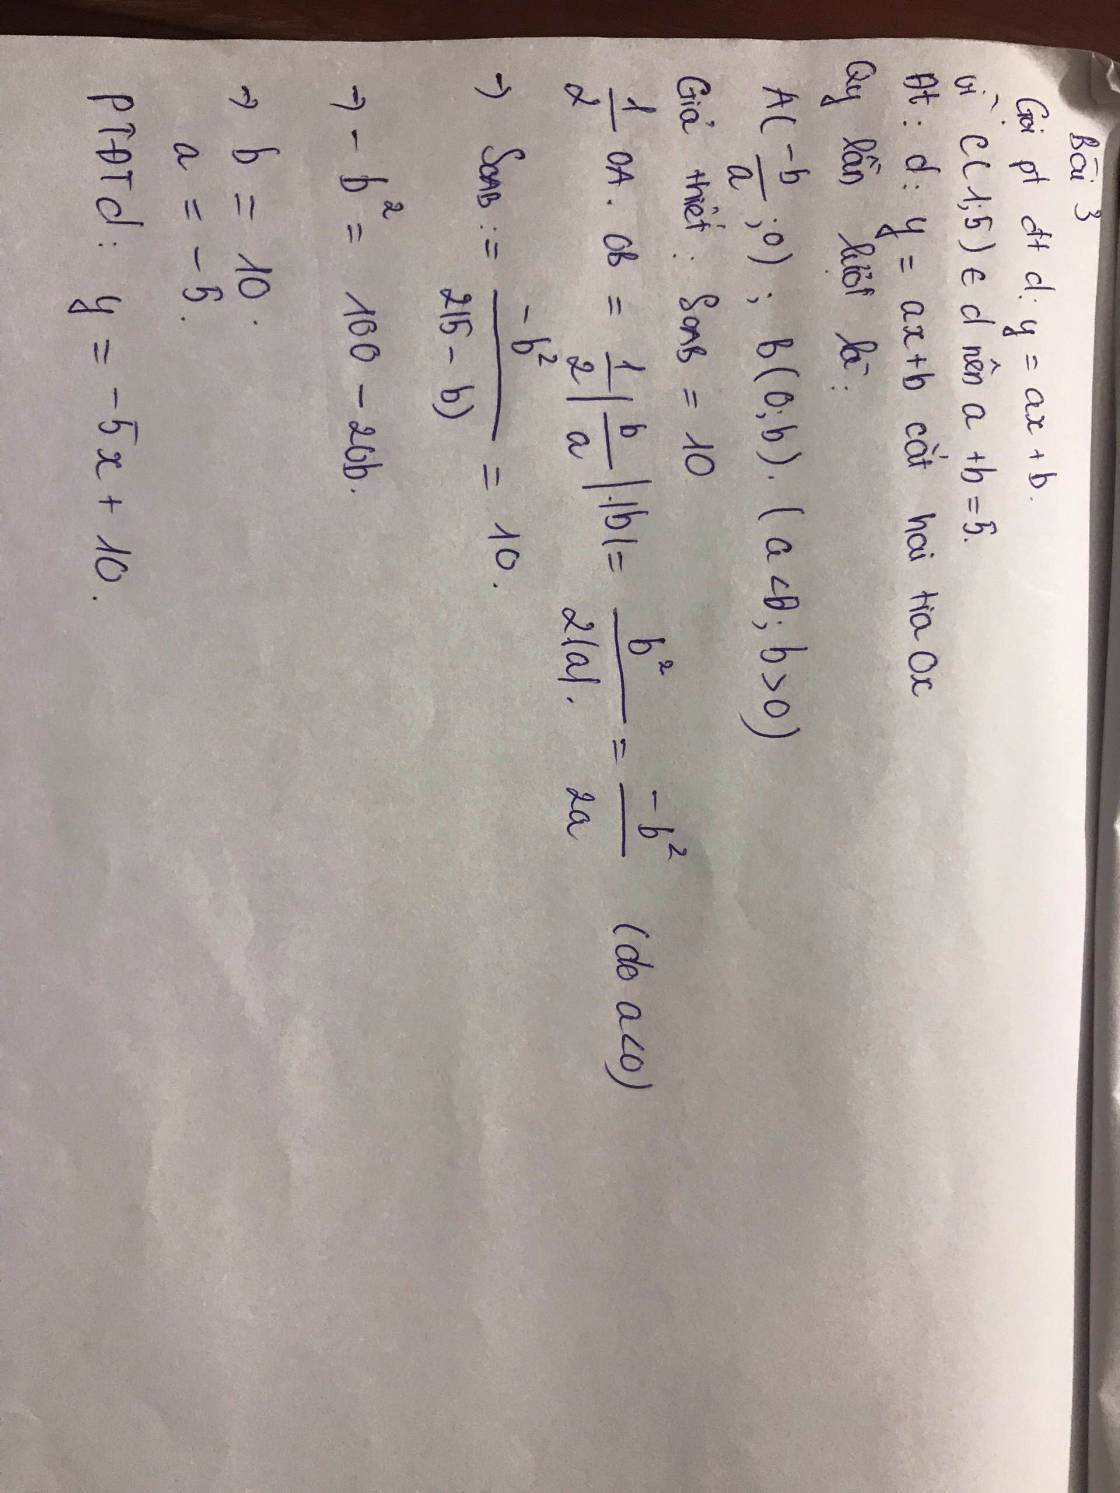 Bài 3
Gọi pt đt d: y = ax + b.
Vì C(1;5) ∈ d nên a + b = 5.
Đt: d: y = ax+b cắt hai tia Ox
Oy lần lượt là:
A(-b/a; 0); B(0; b). (a<0; b>0)
Giả thiết: SOAB = 10
1/2 OA. OB = 1/2 |b/a|.|b| = b²/2|a|. = -b²/2a (do a<0)
→ SOAB := -b²/2(5-b) = 10.
→ -b² = 100 - 20b.
→ b = 10.
a = -5.
PTĐT d: y = -5x + 10.